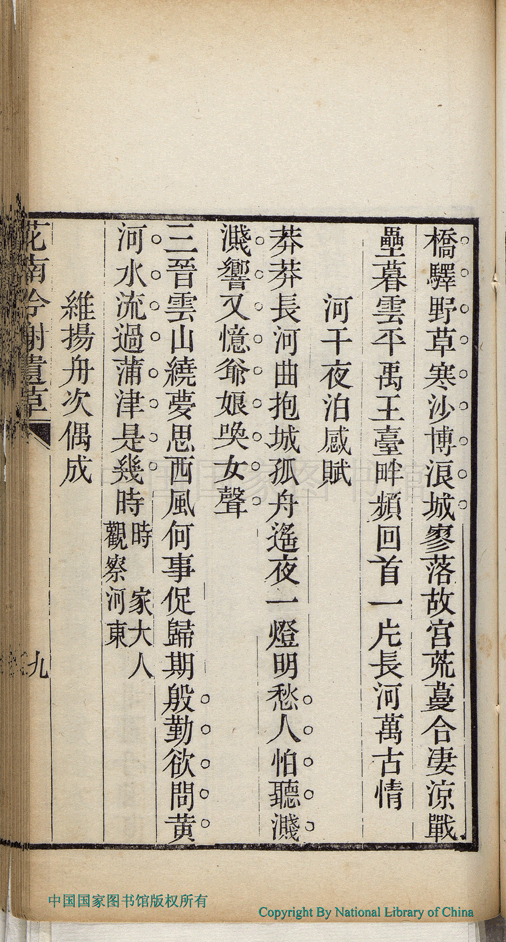 橋驛野草寒沙博浪城寥落故宮荒蔓合凄涼戰
壘暮雲平禹王臺畔頻回首一片長河萬古情
河干夜泊感賦
莽莽長河曲抱城孤舟遙夜一燈明愁人怕聽濺
濺響又憶爺娘喚女聲
三晉雲山繞夢思西風何事促歸期殷勤欲問黃
河水流過蒲津是幾時時家大人
觀察河東
維揚舟次偶成
花南吟榭遺草
九
中国国家图书馆版权所有
Copyright By National Library of China